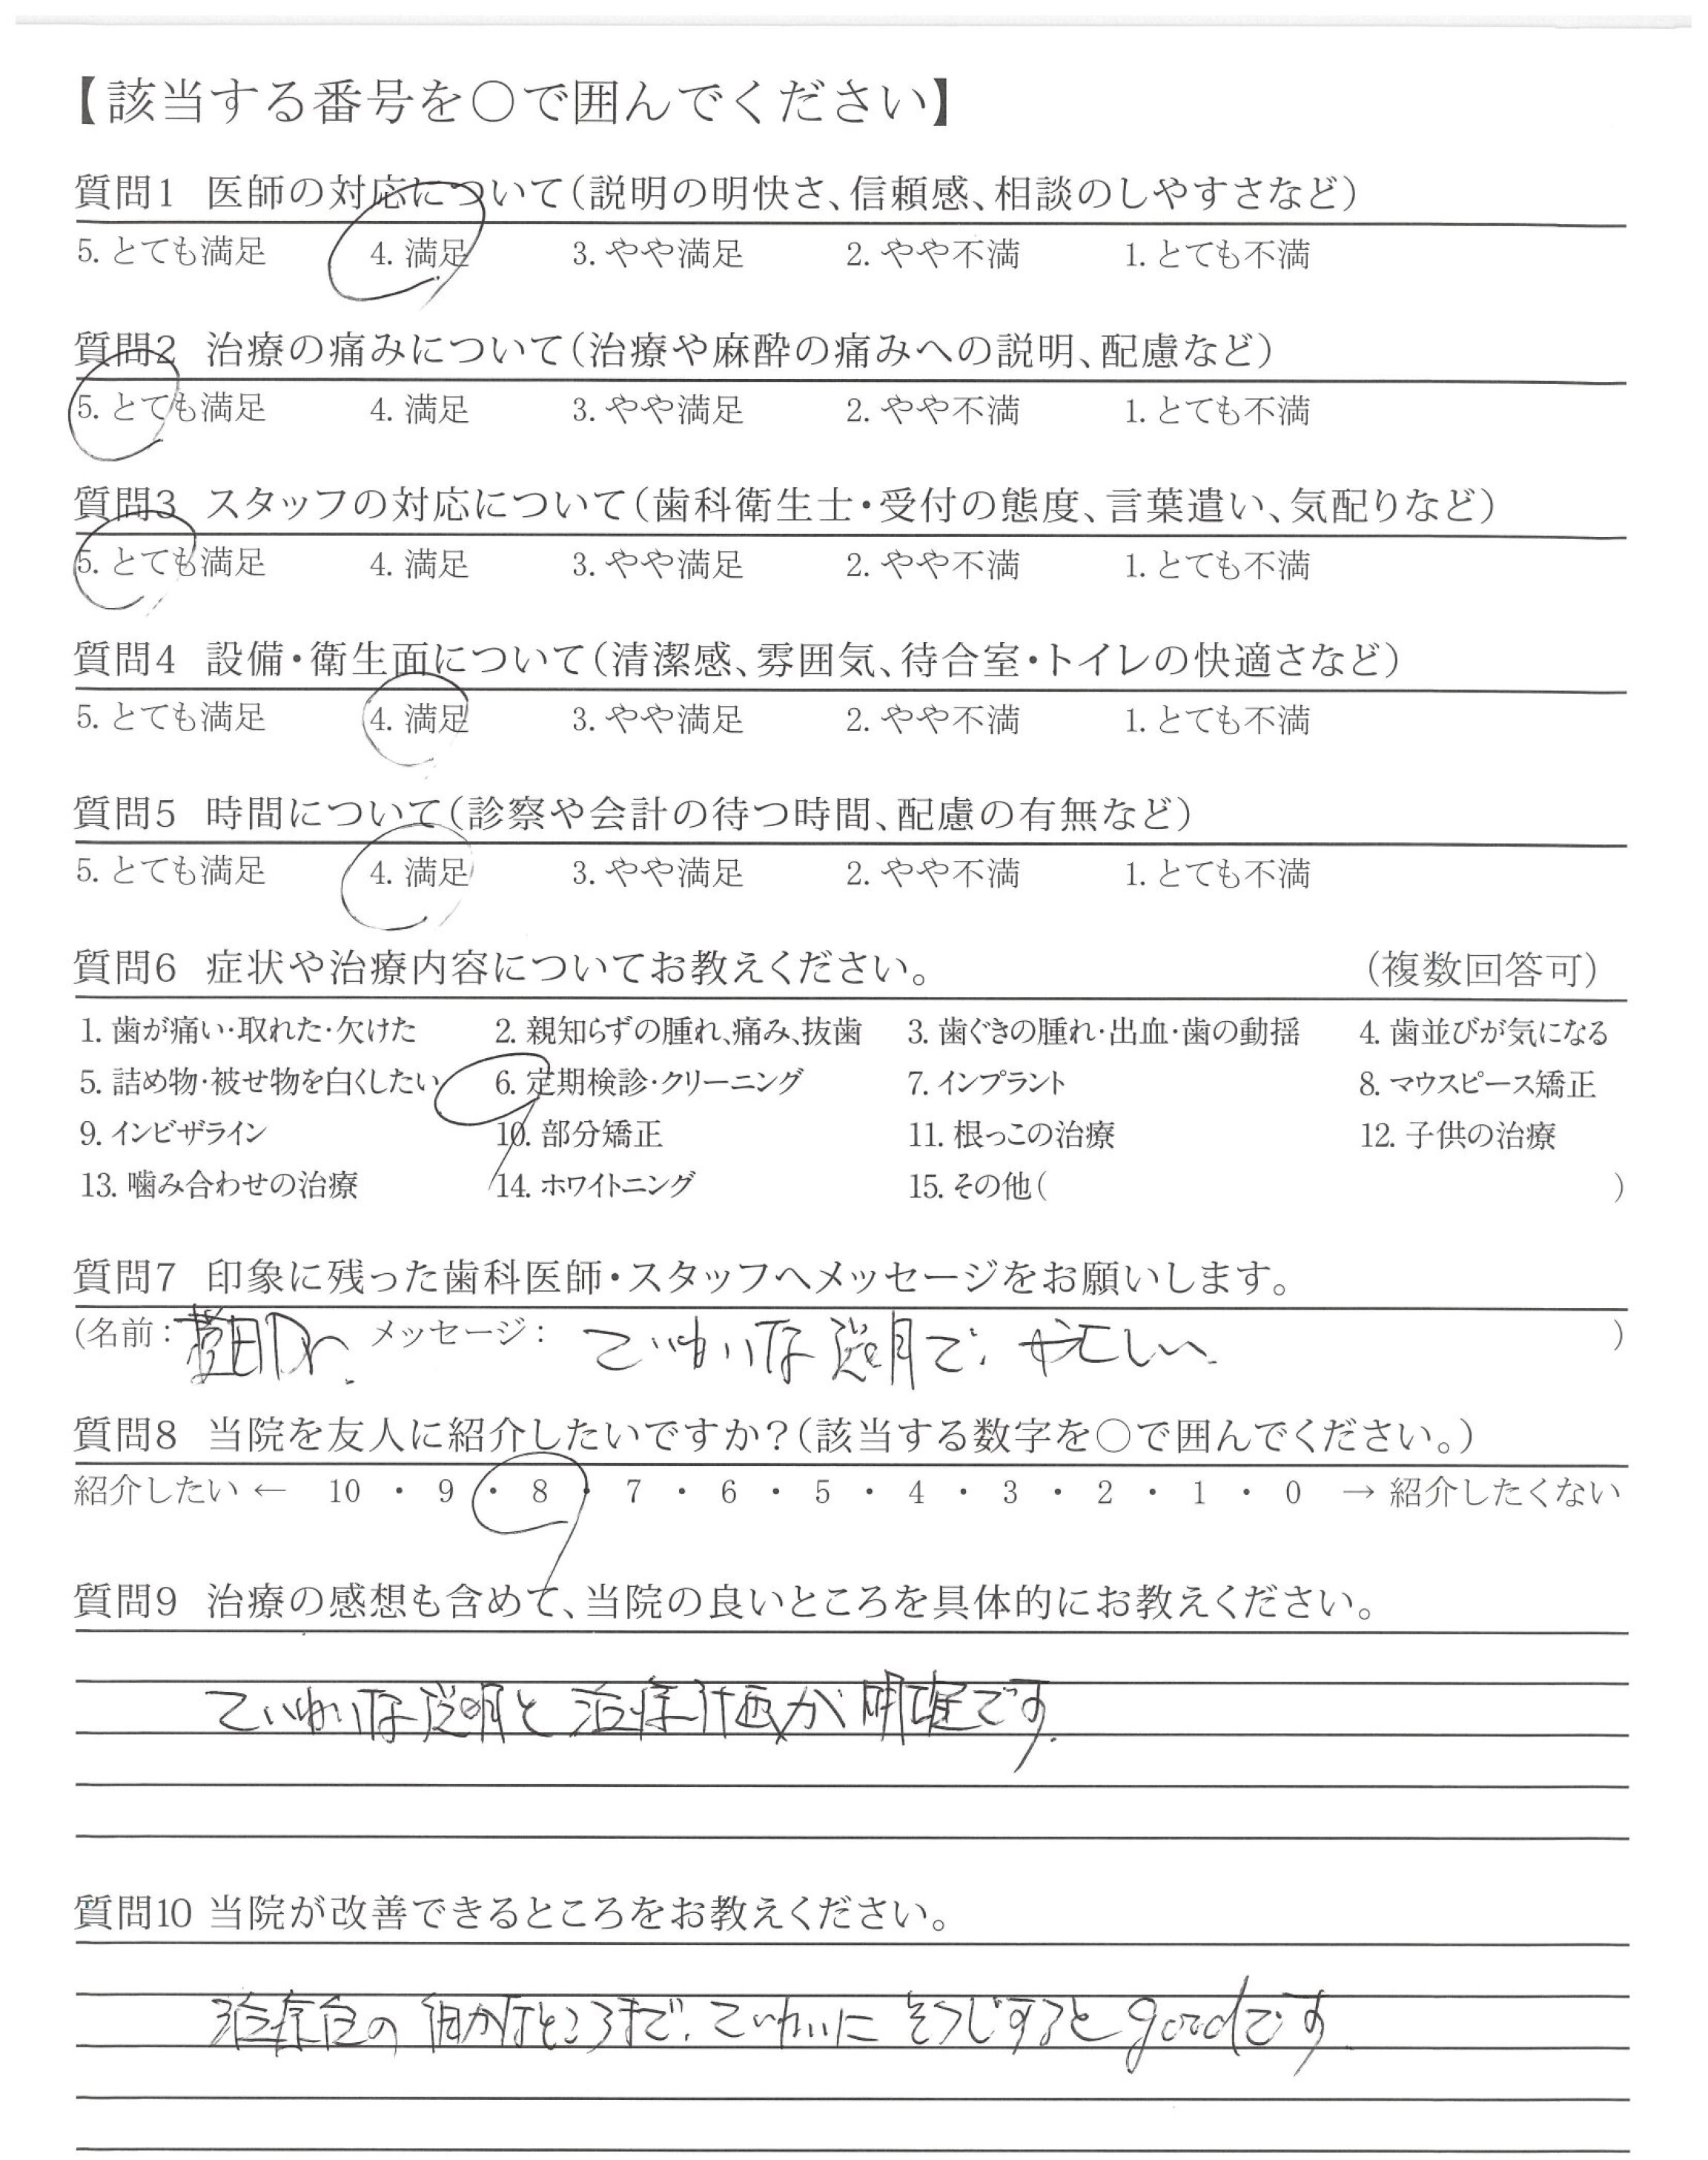 【該当する番号を○で囲んでください】
質問1 医師の対応について(説明の明快さ、信頼感、相談のしやすさなど)
5. とても満足 4. 満足 3. やや満足 2. やや不満 1. とても不満
質問2 治療の痛みについて(治療や麻酔の痛みへの説明、配慮など)
5. とても満足 4. 満足 3. やや満足 2. やや不満 1. とても不満
質問3 スタッフの対応について(歯科衛生士・受付の態度、言葉遣い、気配りなど)
5. とても満足 4. 満足 3. やや満足 2. やや不満 1. とても不満
質問4 設備・衛生面について(清潔感、雰囲気、待合室・トイレの快適さなど)
5. とても満足 4. 満足 3. やや満足 2. やや不満 1. とても不満
質問5 時間について(診察や会計の待つ時間、配慮の有無など)
5. とても満足 4. 満足 3. やや満足 2. やや不満 1. とても不満
質問6 症状や治療内容についてお教えください。 (複数回答可)
1. 歯が痛い・取れた・欠けた 2. 親知らずの腫れ、痛み、抜歯 3. 歯ぐきの腫れ・出血・歯の動揺 4. 歯並びが気になる
5. 詰め物・被せ物を白くしたい 6. 定期検診・クリーニング 7. インプラント 8. マウスピース矯正
9. インビザライン 10. 部分矯正 11. 根っこの治療 12. 子供の治療
13. 噛み合わせの治療 14. ホワイトニング 15. その他( )
質問7 印象に残った歯科医師・スタッフへメッセージをお願いします。
(名前: 田Dr. メッセージ: ていねいな説明で、やさしい )
質問8 当院を友人に紹介したいですか?(該当する数字を○で囲んでください。)
紹介したい ← 10 ・ 9 ・ 8 ・ 7 ・ 6 ・ 5 ・ 4 ・ 3 ・ 2 ・ 1 ・ 0 → 紹介したくない
質問9 治療の感想も含めて、当院の良いところを具体的にお教えください。
ていねいな説明と治療計画が明確です.
質問10 当院が改善できるところをお教えください。
治療台の細かなところまで、ていねいにそうじするとgoodです.